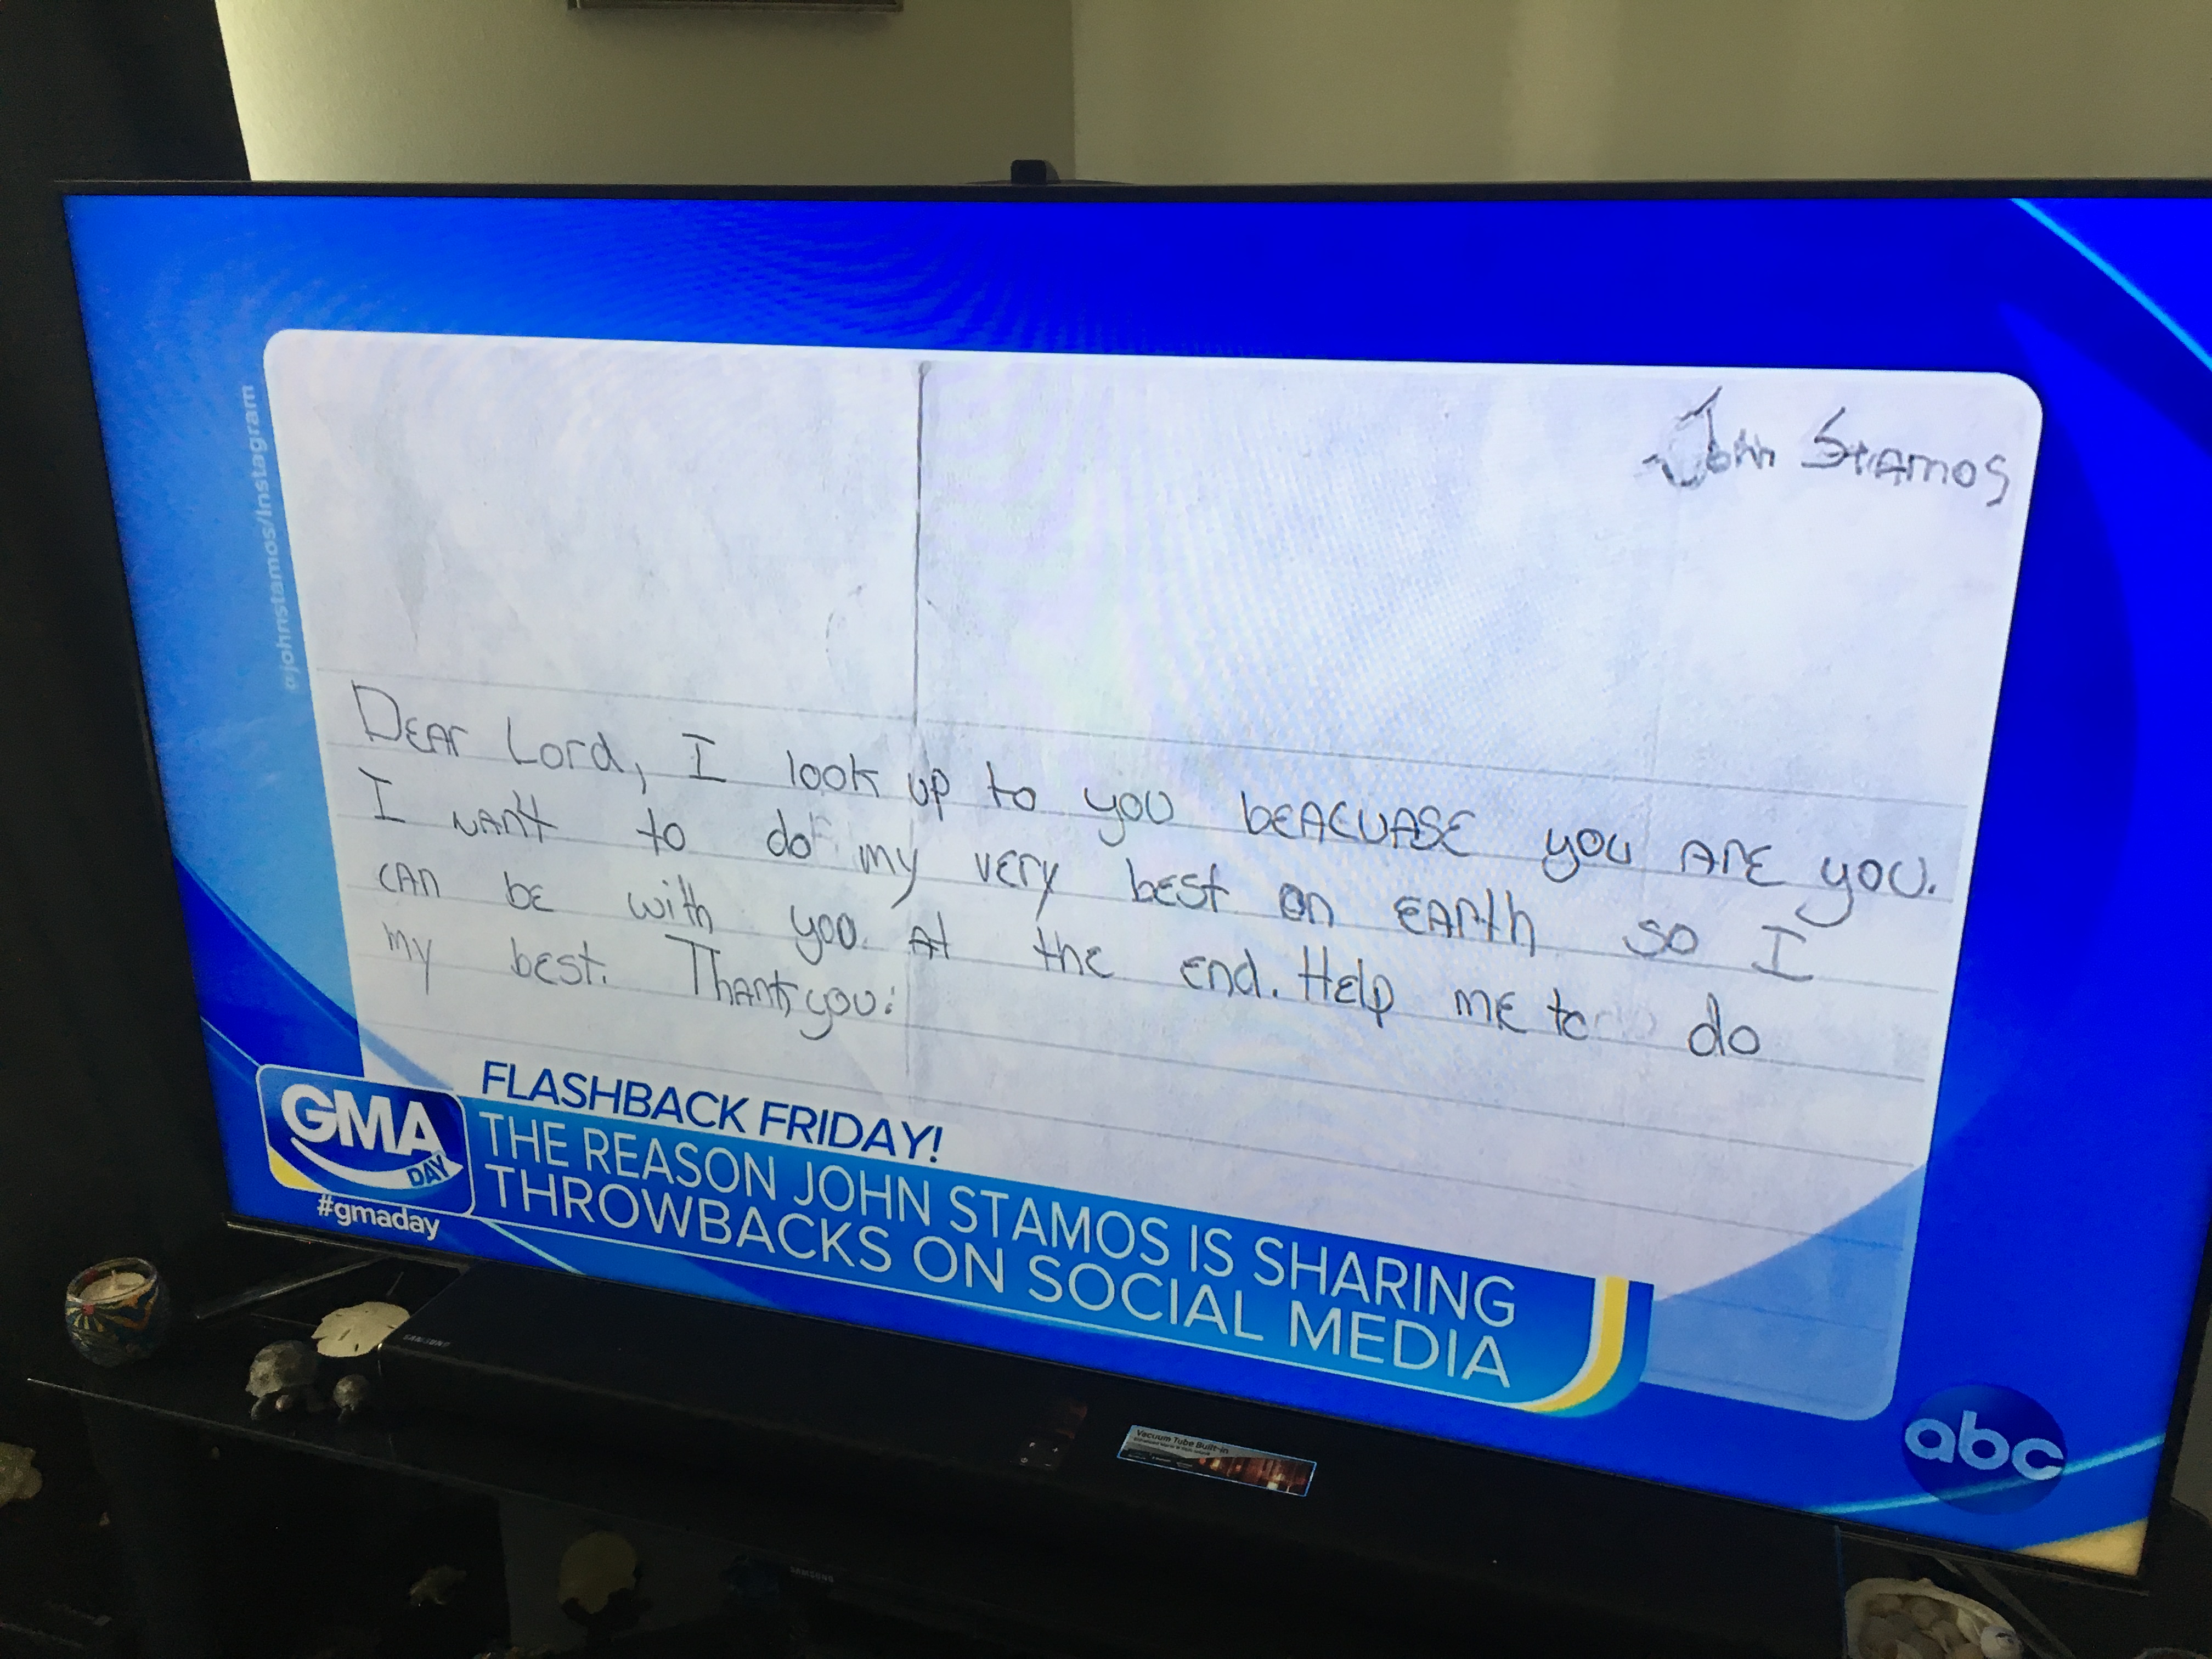 @johnstamos/Instagram
John Stamos
Dear Lord, I look up to you beacuase you are you.
I want to do my very best on earth so I
can be with you at the end. Help me to do
my best. Thank you:
FLASHBACK FRIDAY!
GMA
DAY
THE REASON JOHN STAMOS IS SHARING
THROWBACKS ON SOCIAL MEDIA
#gmaday
abc
SAMSUNG
Vacuum Tube Built-in
SAMSUNG